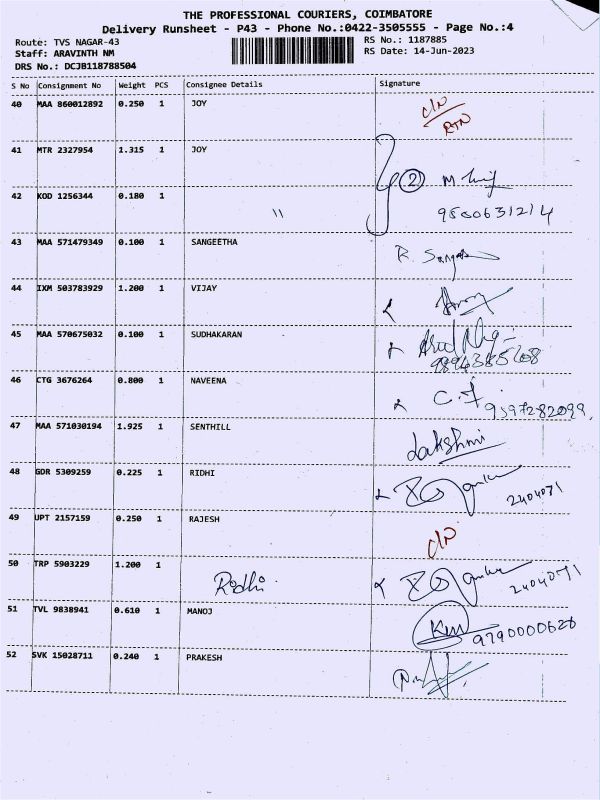 THE PROFESSIONAL COURIERS, COIMBATORE
Delivery Runsheet - P43 - Phone No.:0422-3505555 - Page No.:4
Route: TVS NAGAR-43 RS No.: 1187885
Staff: ARAVINTH NM RS Date: 14-Jun-2023
DRS No.: DCJB118788504
S No Consignment No Weight PCS Consignee Details Signature
40 MAA 860012892 0.250 1 JOY C/N
RTN
41 MTR 2327954 1.315 1 JOY
2 M
42 KOD 1256344 0.180 1 "
43 MAA 571479349 0.100 1 SANGEETHA R. Sangee
44 IXM 503783929 1.200 1 VIJAY
45 MAA 570675032 0.100 1 SUDHAKARAN
46 CTG 3676264 0.800 1 NAVEENA 9597282099
47 MAA 571030194 1.925 1 SENTHILL Lakshmi
48 GDR 5309259 0.225 1 RIDHI 2404071
49 UPT 2157159 0.250 1 RAJESH C/N
50 TRP 5903229 1.200 1 Ridhi 2404071
51 TVL 9838941 0.610 1 MANOJ 9790000626
52 SVK 15028711 0.240 1 PRAKESH